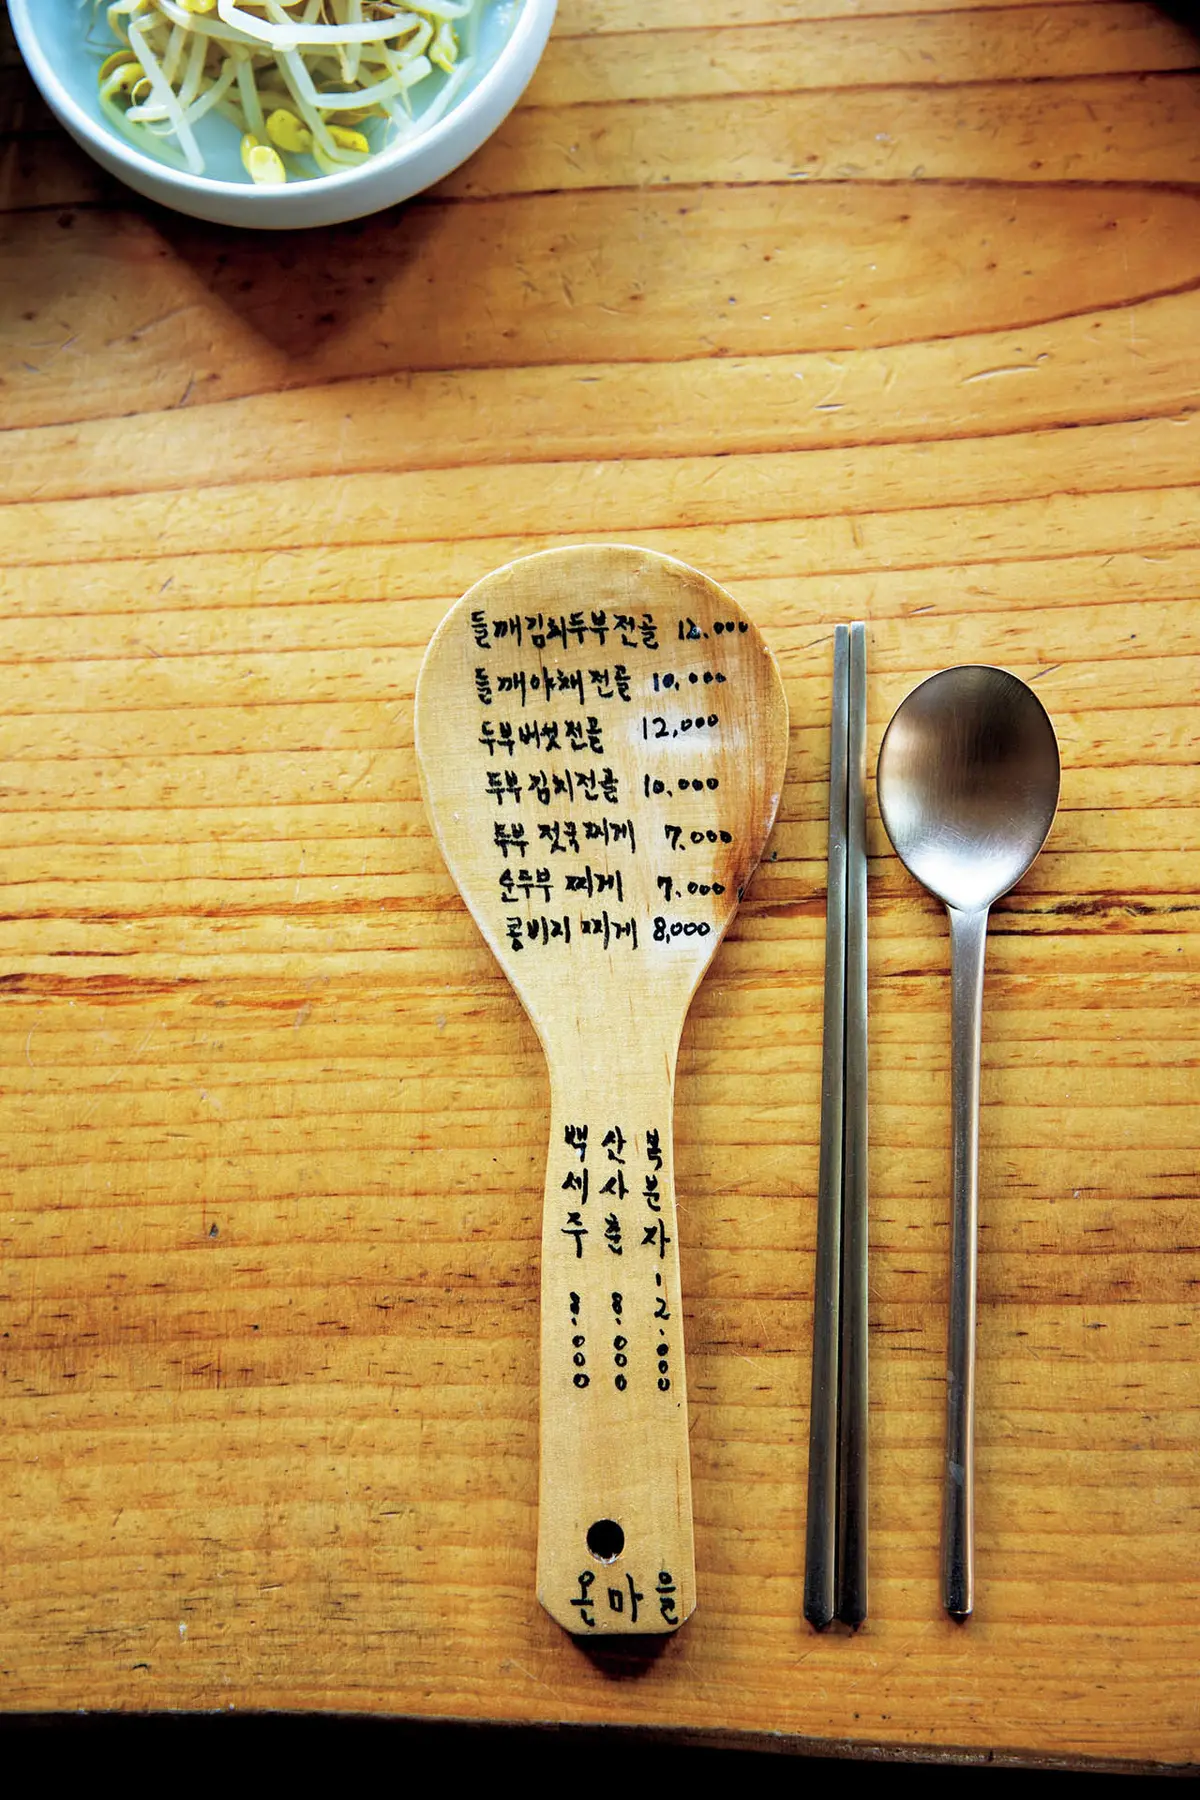 들깨김치두부전골 12.000
들깨야채전골 10,000
두부버섯전골 12,000
두부김치전골 10,000
두부 젓국찌게 7.000
순두부 찌게 7.000
콩비지 찌게 8,000
백세주 8.000
산사춘 8.000
복분자 12.000
온마을